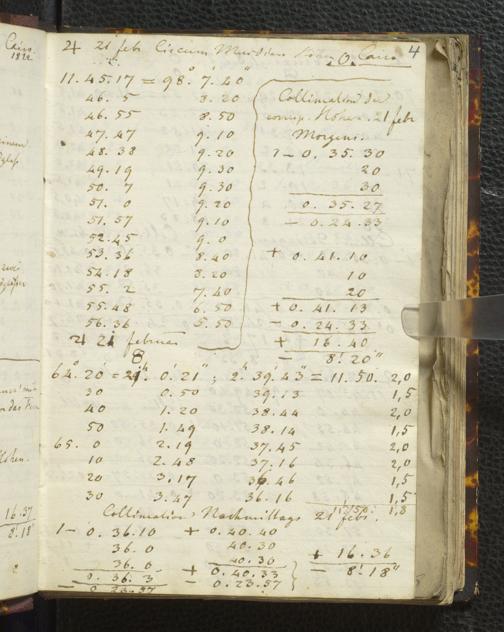 Cairo
1822
4
♃ 21 febr Circum Meridian Höhen ☉ Cairo
11.45.17 = 98° 7.40"
46. 5 8.20
46.55 8.50
47.47 9.10
48.38 9.20
49.19 9.30
50. 7 9.30
51. 0 9.20
51.57 9.10
52.45 9.0
53.36 8.40
54.18 8.20
55.2 7.40
55.48 6.50
56.36 5.50
Collimation der
corresp. Höhen 21 febr
Morgens.
- 0. 35. 30
20
30
0. 35. 27
- 0. 24. 33
+ 0. 41. 10
10
20
+ 0. 41. 13
- 0. 24. 33
+ 16. 40
- 8'. 20"
♃ 21 februar
64°. 20' = 21h. 0'. 21" ; 2h. 39'. 43" = 11. 50. 2,0
30 0.50 39.13 1,5
40 1.20 38.44 2,0
50 1.49 38.14 1,5
65. 0 2.19 37.45 2,0
10 2.48 37.16 2,0
20 3.17 36.46 1,5
30 3.47 36.16 1,5
11.50. 1,8
Collimation Nachmittags 21 febr.
- 0. 36.10 + 0. 40. 40
36. 0 40. 30
36. 0 40. 30
0. 36. 3 + 0. 40. 33
- 0. 23.57 - 0. 23.57
+ 16. 36
- 8'. 18"
16.37
8'. 18"